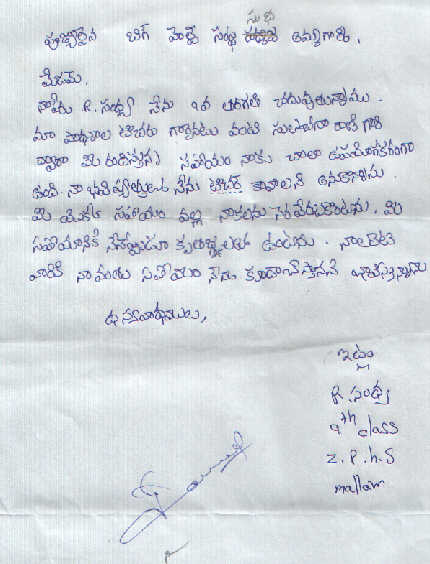 సుధ
పూజ్యులైన బిగ్ హెల్ప్ సంస్థ అమ్మగారికి,
మేడమ్.
నాపేరు R. సంధ్య నేను 9వ తరగతి చదువుతున్నాను.
మా పాఠశాల టీచరు గ్యారంటు వంటి సులోచనా రాణి గారి
ద్వారా మీరందిస్తున్న సహాయం నాకు చాలా ఉపయోగకరంగా
ఉంది నా భవిష్యత్తులో నేను టీచర్ కావాలని అనుకున్నాను.
మీ యొక్క సహాయం వల్ల నాకలను నెరవేరుకుంటాను. మీ
సహాయానికి నేనెప్పుడూ కృతజ్ఞురాలై ఉంటాను. నాలాంటి
వారికి నావంతు సహాయం నేను కూడా చేస్తానని భావిస్తున్నాను
ధన్యవాదములు,
ఇట్లు
R. సంధ్య
9th class
Z. P. h. S
mallam